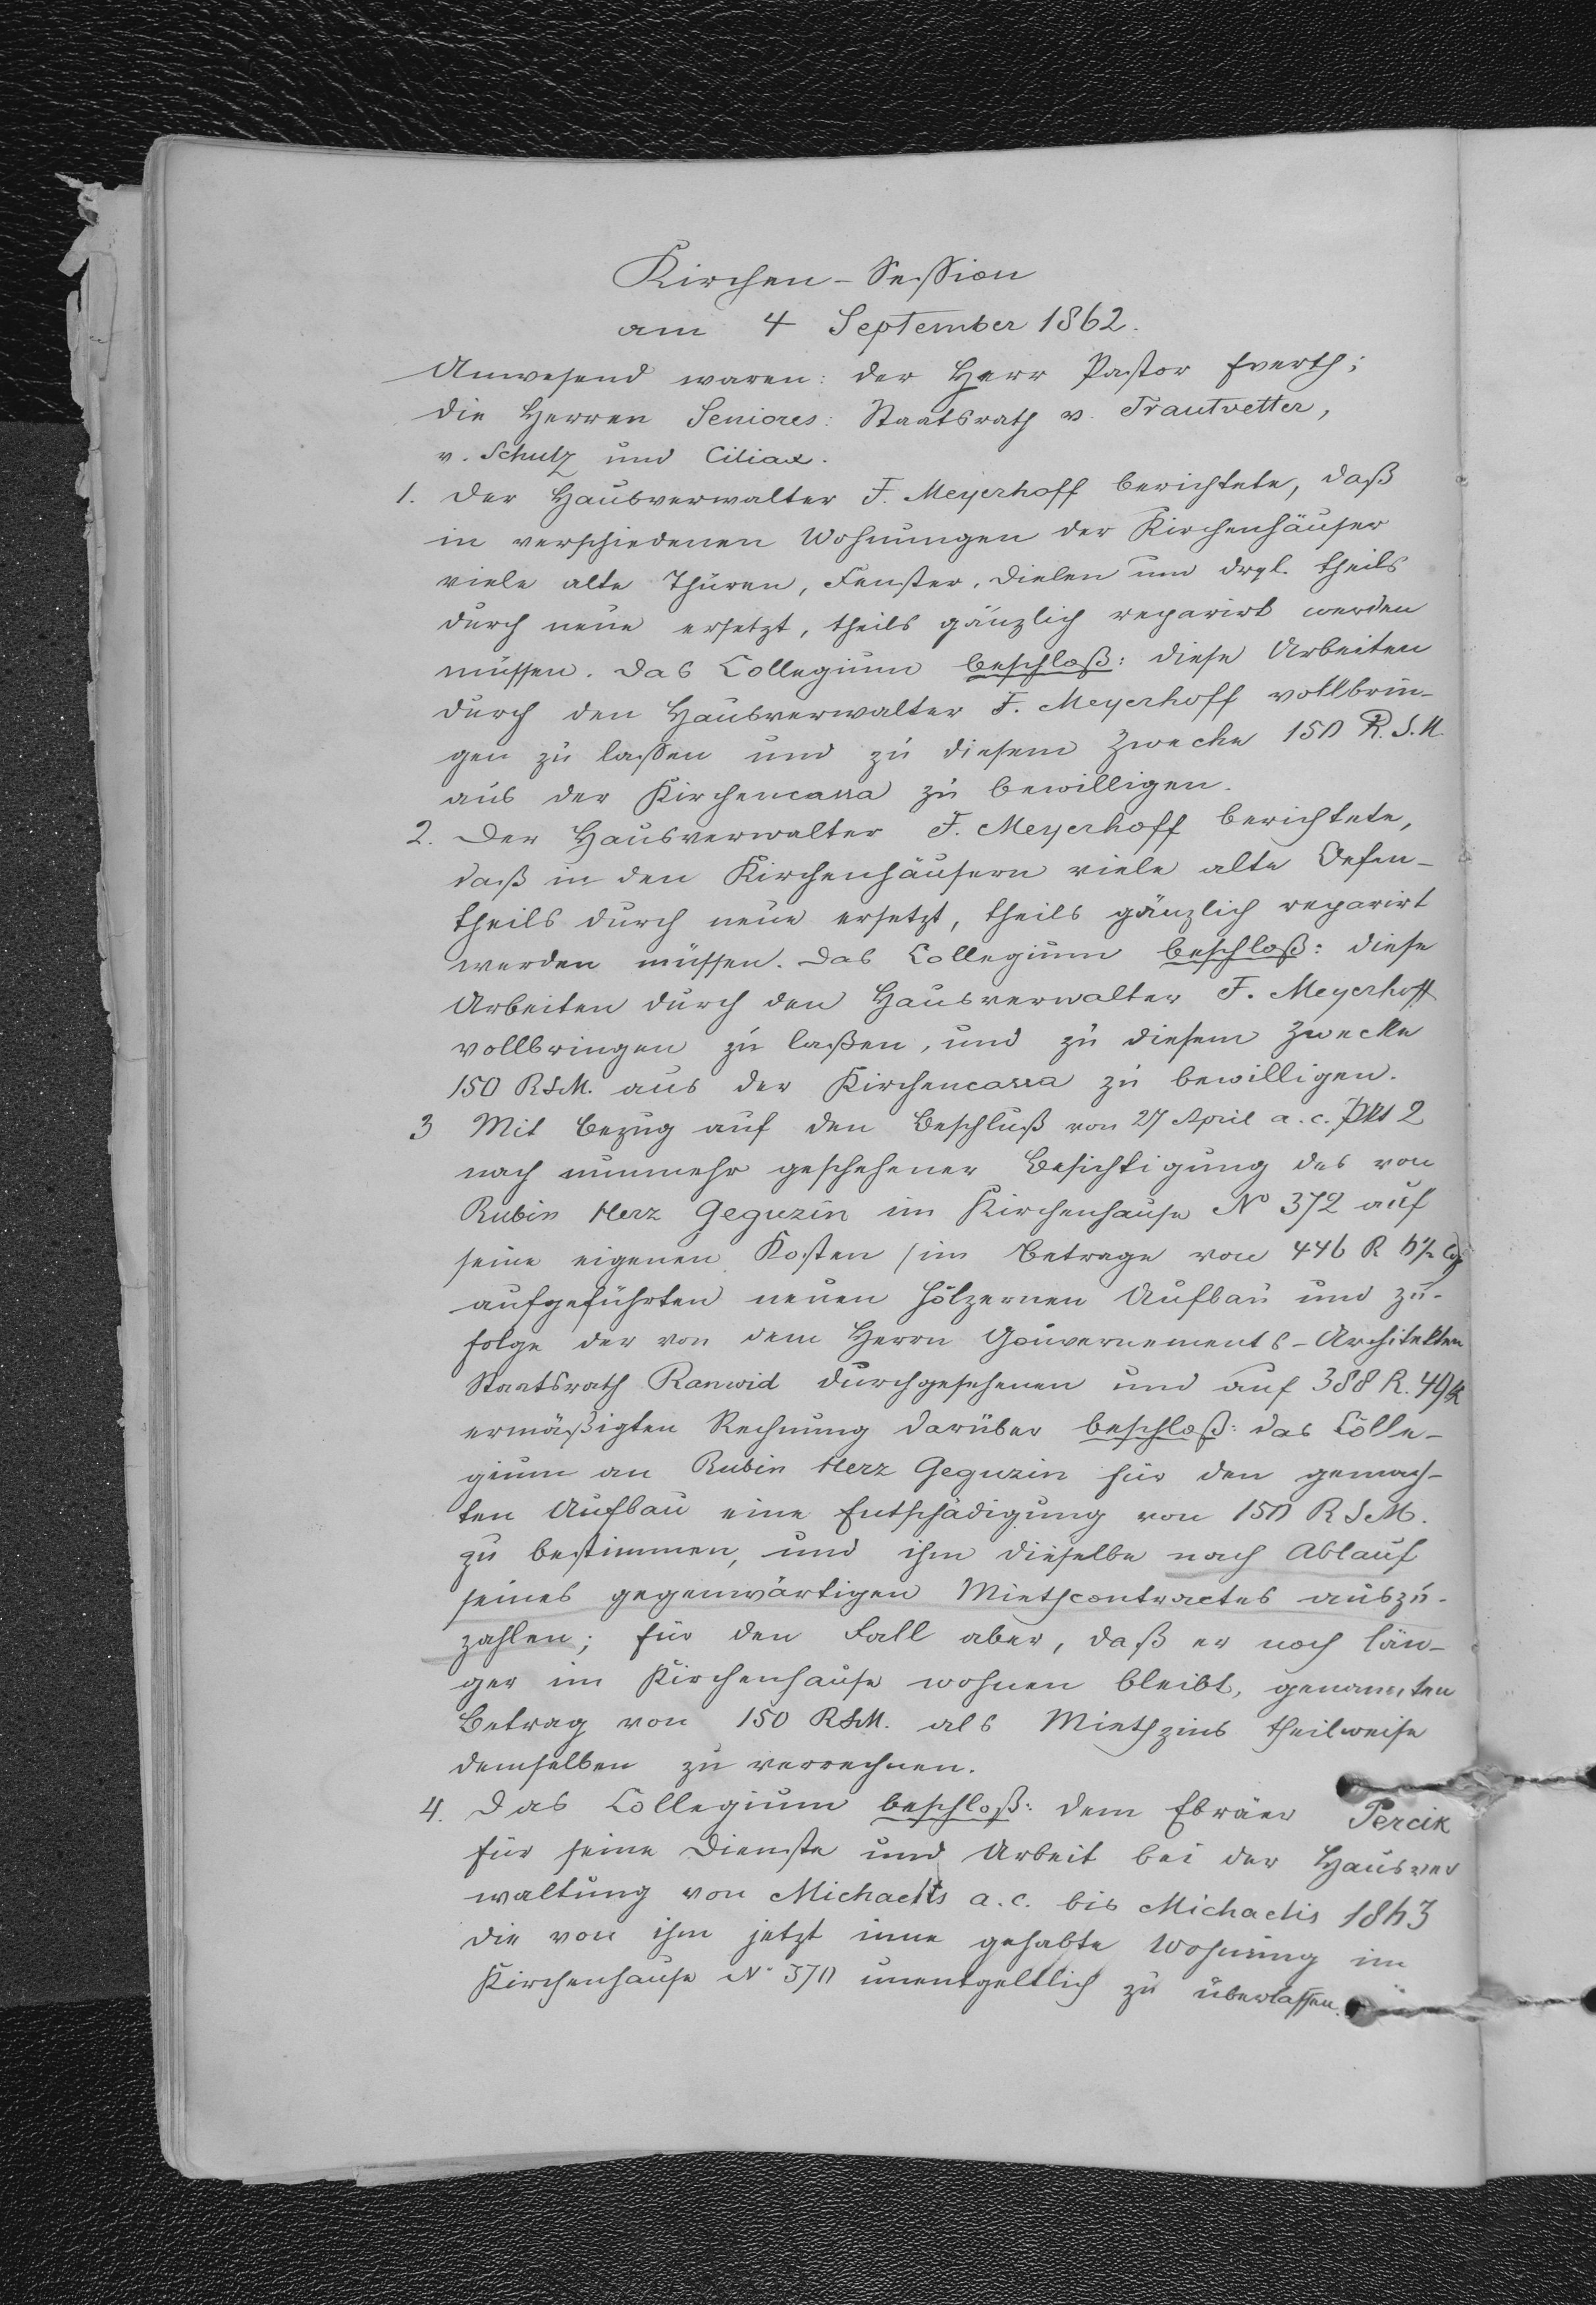 Kirchen-Session
am 4 September 1862.
Anwesend waren: der Herr Pastor Everth;
die Herren Seniores: Staatsrath v. Trautvetter,
v. Schulz und Ciliax.
1. Der Hausverwalter F. Meyerhoff berichtete, daß
in verschiedenen Wohnungen der Kirchenhäuser
viele alte Thüren, Fenster, Dielen und drgl. theils
durch neue ersetzt, theils gänzlich reparirt werden
müssen. Das Collegium beschloß: diese Arbeiten
durch den Hausverwalter F. Meyerhoff vollbrin-
gen zu lassen und zu diesem Zwecke 150 R. S. M.
aus der Kirchencassa zu bewilligen.
2. Der Hausverwalter F. Meyerhoff berichtete,
daß in den Kirchenhäusern viele alte Oefen
theils durch neue ersetzt, theils gänzlich reparirt
werden müssen. Das Collegium beschloß: diese
Arbeiten durch den Hausverwalter F. Meyerhoff
vollbringen zu laßen, und zu diesem Zwecke
150 RSM. aus der Kirchencassa zu bewilligen.
3 Mit Bezug auf den Beschluß von 27 April a. c. Pkt 2
nach nunmehr geschehener Besichtigung des von
Rubin Herz Geguzin im Kirchenhause No 372 auf
seine eigenen Kosten (im Betrage von 446 R
aufgeführten neuen hölzernen Aufbau und zu-
folge der von dem Herrn Gouvernements-Architekten
Staatsrath Ranwid durchgesehenen und auf 388 R. 49 K
ermäßigten Rechnung darüber beschloß: das Colle-
gium an Rubin Herz Geguzin für den gemach-
ten Aufbau eine Entschädigung von 150 R S M.
zu bestimmen, und ihm dieselbe nach Ablauf
seines gegenwärtigen Miethcontractes auszu-
zahlen; für den Fall aber, daß er noch län-
ger im Kirchenhause wohnen bleibt, genannten
Betrag von 150 RSM. als Miethzins theilweise
demselben zu verrechnen.
4. Das Collegium beschloß: dem Ebräer Percik
für seine Dienste und Arbeit bei der Hausver
waltung von Michaelis a. c. bis Michaelis 1863
die von ihm jetzt inne gehabte Wohnung im
Kirchenhause No 370 unentgeltlich zu überlassen.